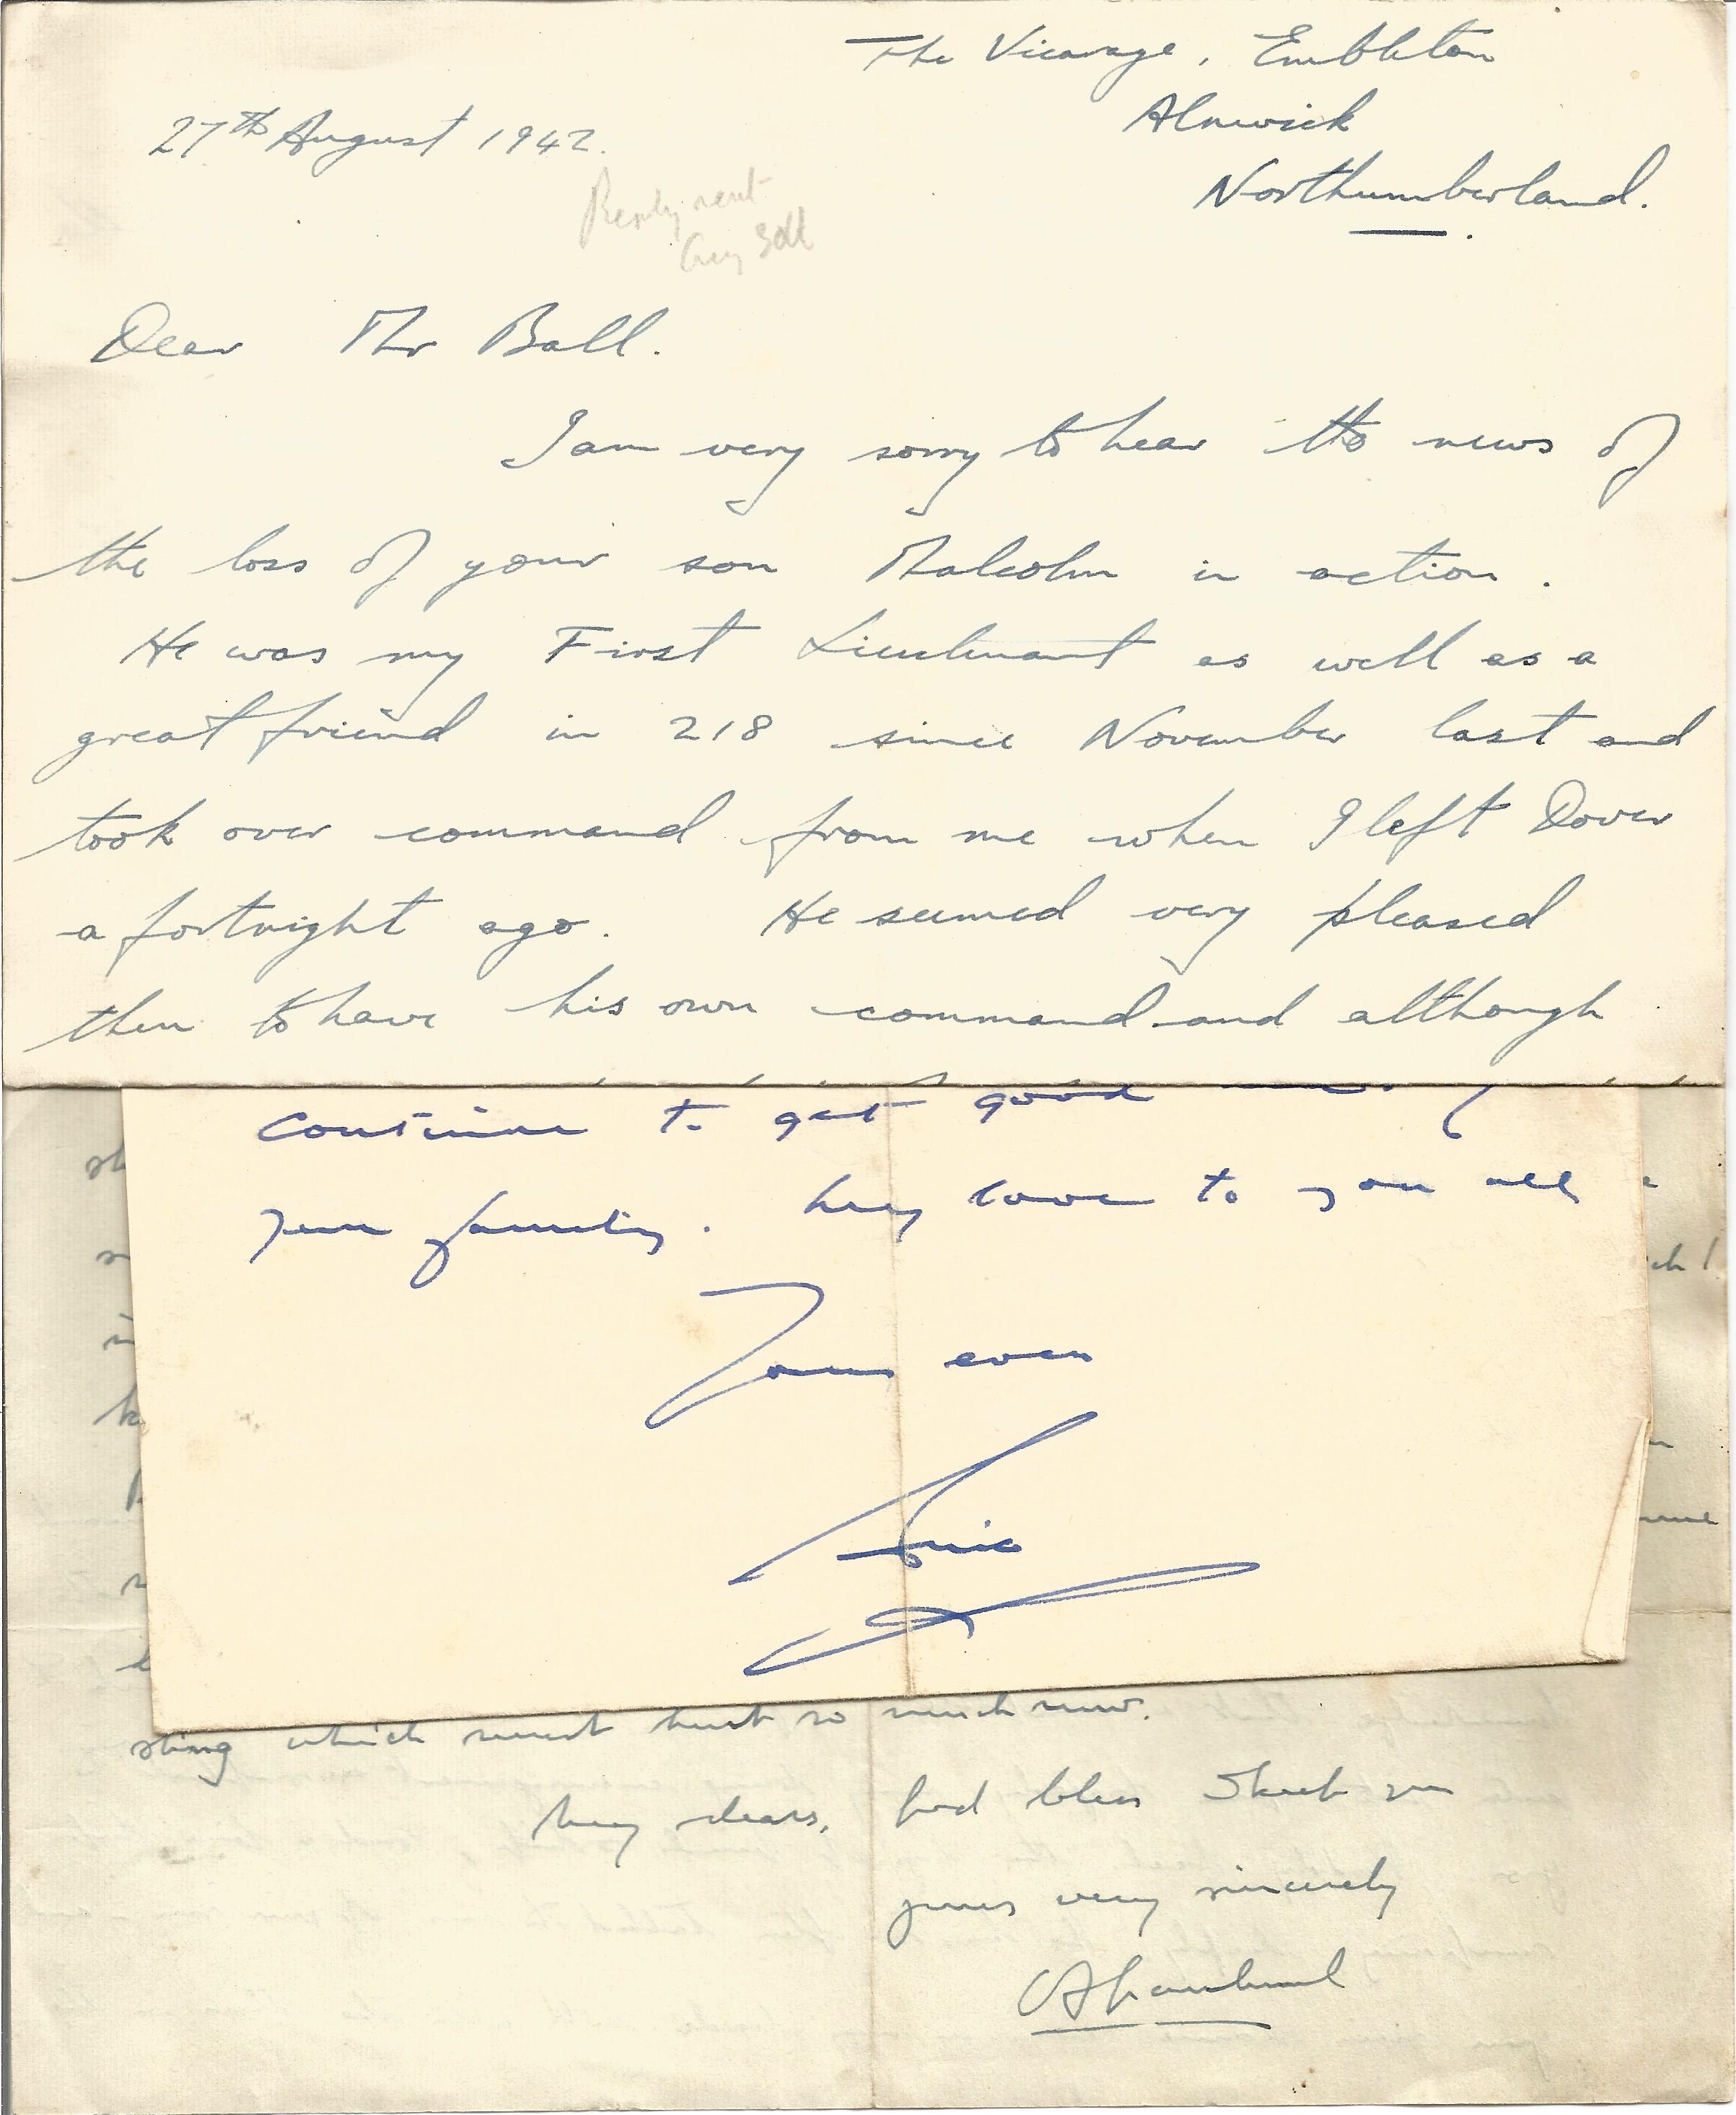 The Vicarage, Embleton
Alnwick
Northumberland.
27th August 1942.
Reply sent
Aug 30th
Dear Mr Ball.
I am very sorry to hear the news of
the loss of your son Malcolm in action.
He was my First Lieutenant as well as a
great friend in 218 since November last and
took over command from me when I left Dover
a fortnight ago. He seemed very pleased
then to have his own command and although
continue to get good
your family. My love to you all
Yours ever
sting which must hurt so much now.
My dears, God bless you
yours very sincerely